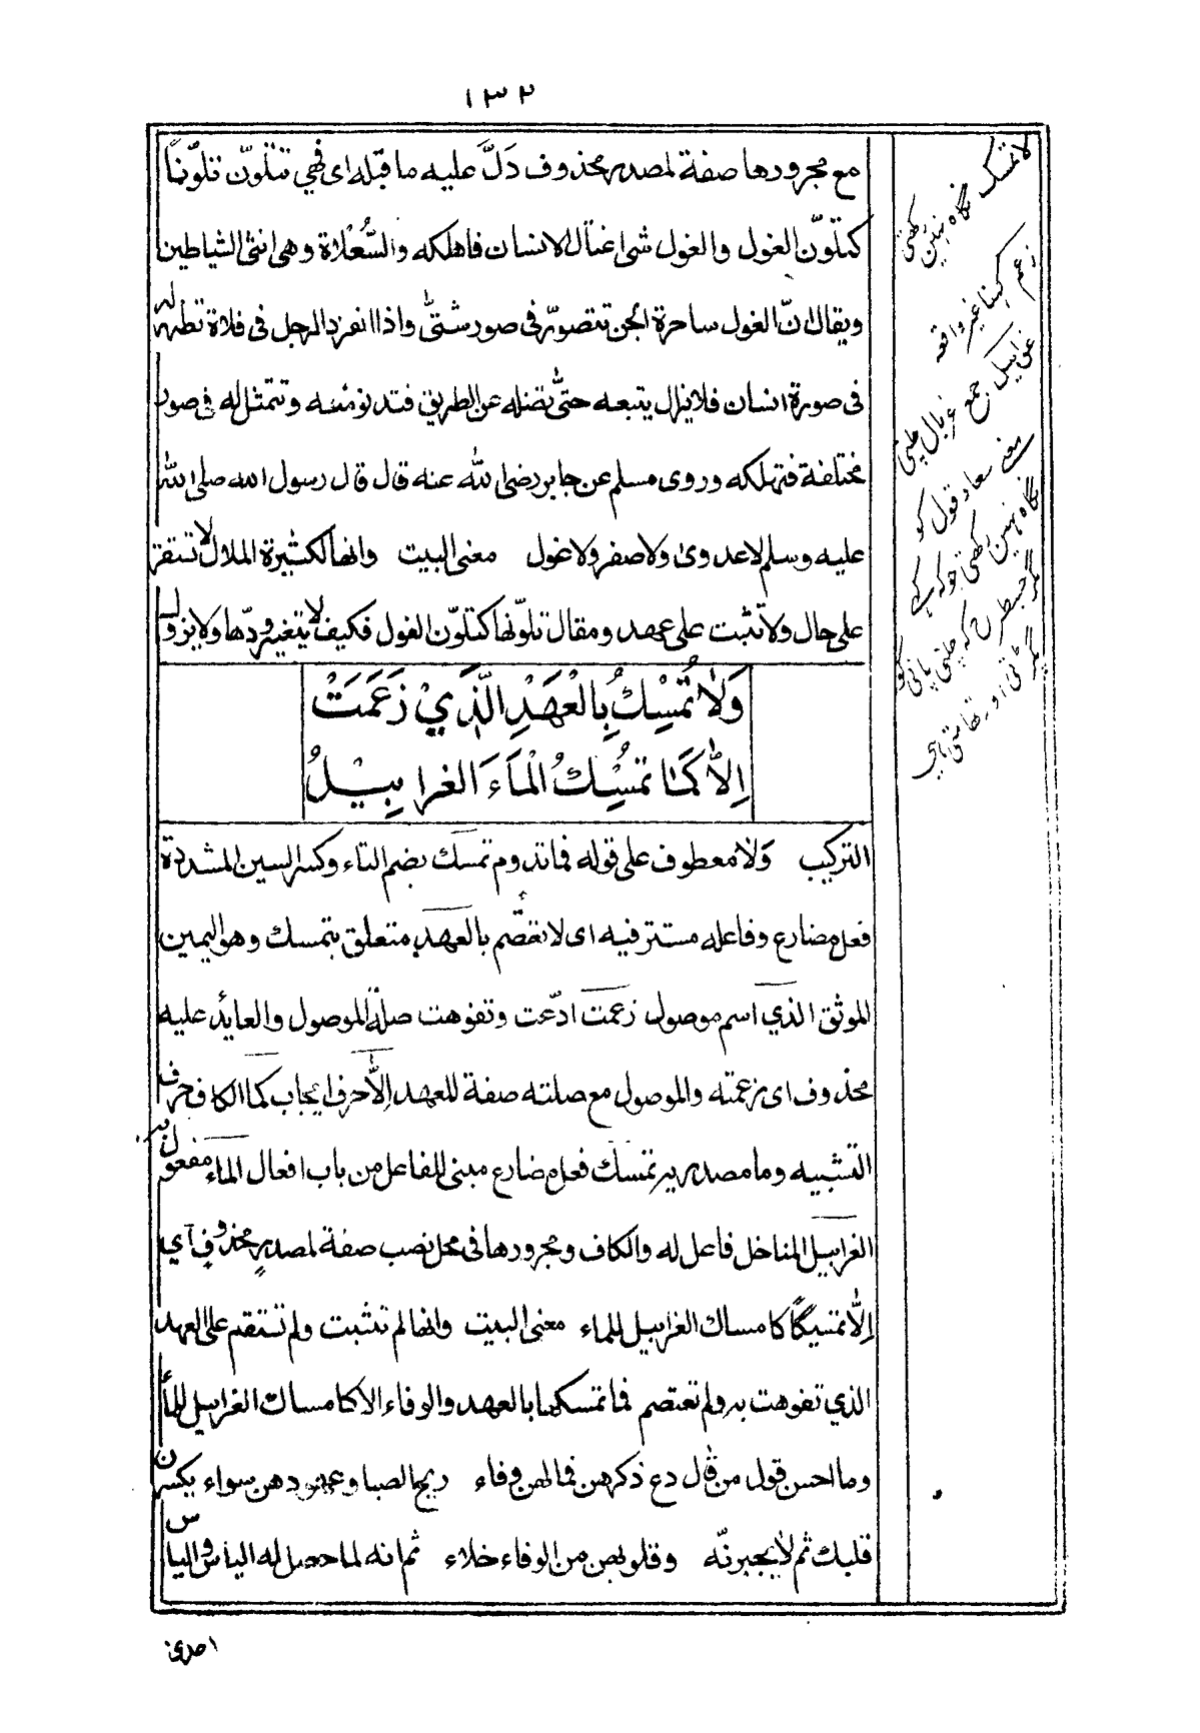 ١٣٢
مع مجرورها صفة لمصدر محذوف دَلَّ عليه ما قبله اى فهي تتلوّن تلوّنًا
كتلوّن الغول والغول شئ اغتال الانسان فاهلكه والسُّعْلاة وهى انثى الشياطين
ويقال انّ الغول ساحرة الجن تتصوّر فى صور شتّى واذا انفرد الرجل فى فلاة تظهر له
فى صورة انسان فلا يزال يتبعه حتّى تضله عن الطريق فتدنو منه وتتمثل له فى صور
مختلفة فتهلكه وروى مسلم عن جابر رضى الله عنه قال قال رسول الله صلى الله
عليه وسلم لا عدوى ولا صفر ولا غول معنى البيت وانها لكثيرة الملال لا تستقر
على حال ولا تثبت على عهد ومقال تلوّنها كتلوّن الغول فكيف لا يتغير ودّها ولا يزول
وَلَا تُمْسِكُ بِالْعَهْدِ الَّذِيْ زَعَمَتْ
اِلَّا كَمَا تُمْسِكُ الْمَآءَ الغرابِيْلُ
التركيب وَلا معطوف على قوله فما تدوم تمسك بضم التاء وكسر السين المشددة
فعل مضارع وفاعله مستتر فيه اى لا تعتصم بالعهد متعلق بتمسك وهو اليمين
الموثق الذي اسم موصول زعمت ادّعت وتفوهت صلة الموصول والعايد عليه
محذوف اى زعمته والموصول مع صلته صفة للعهد اِلَّا حرف ايجاب كما الكاف حرف
التشبيه وما مصدرية تمسك فعل مضارع مبنى للفاعل من باب افعال الماء مفعول به
الغرابيل المناخل فاعل له والكاف ومجرورها فى محل نصب صفة لمصدرٍ محذوفٍ آي
اِلَّا تمسيكًا كامساك الغرابيل للماء معنى البيت وانها لم تثبت ولم تستقم على العهد
الذي تفوهت به ولم تعتصم فما تمسكها بالعهد والوفاء الا كامساك الغرابيل للمآء
وما احسن قول من قال دع ذكرهن فما لهن وفاء ريح الصبا وعهودهن سواء يكسرن
قلبك ثم لا يجبرنّه وقلوبهن من الوفاء خلاء ثم انه لما حصل له الياس والياس
لا تمسک نگاه نہین رکھتی
زعم کہنا غیر واقعہ
غرابیل جمع غربال چلنی
معنے سعاد قول کو
نگاه نہین رکھتی جو کہے
مگر جسطرح کہ چلنی پانی کو